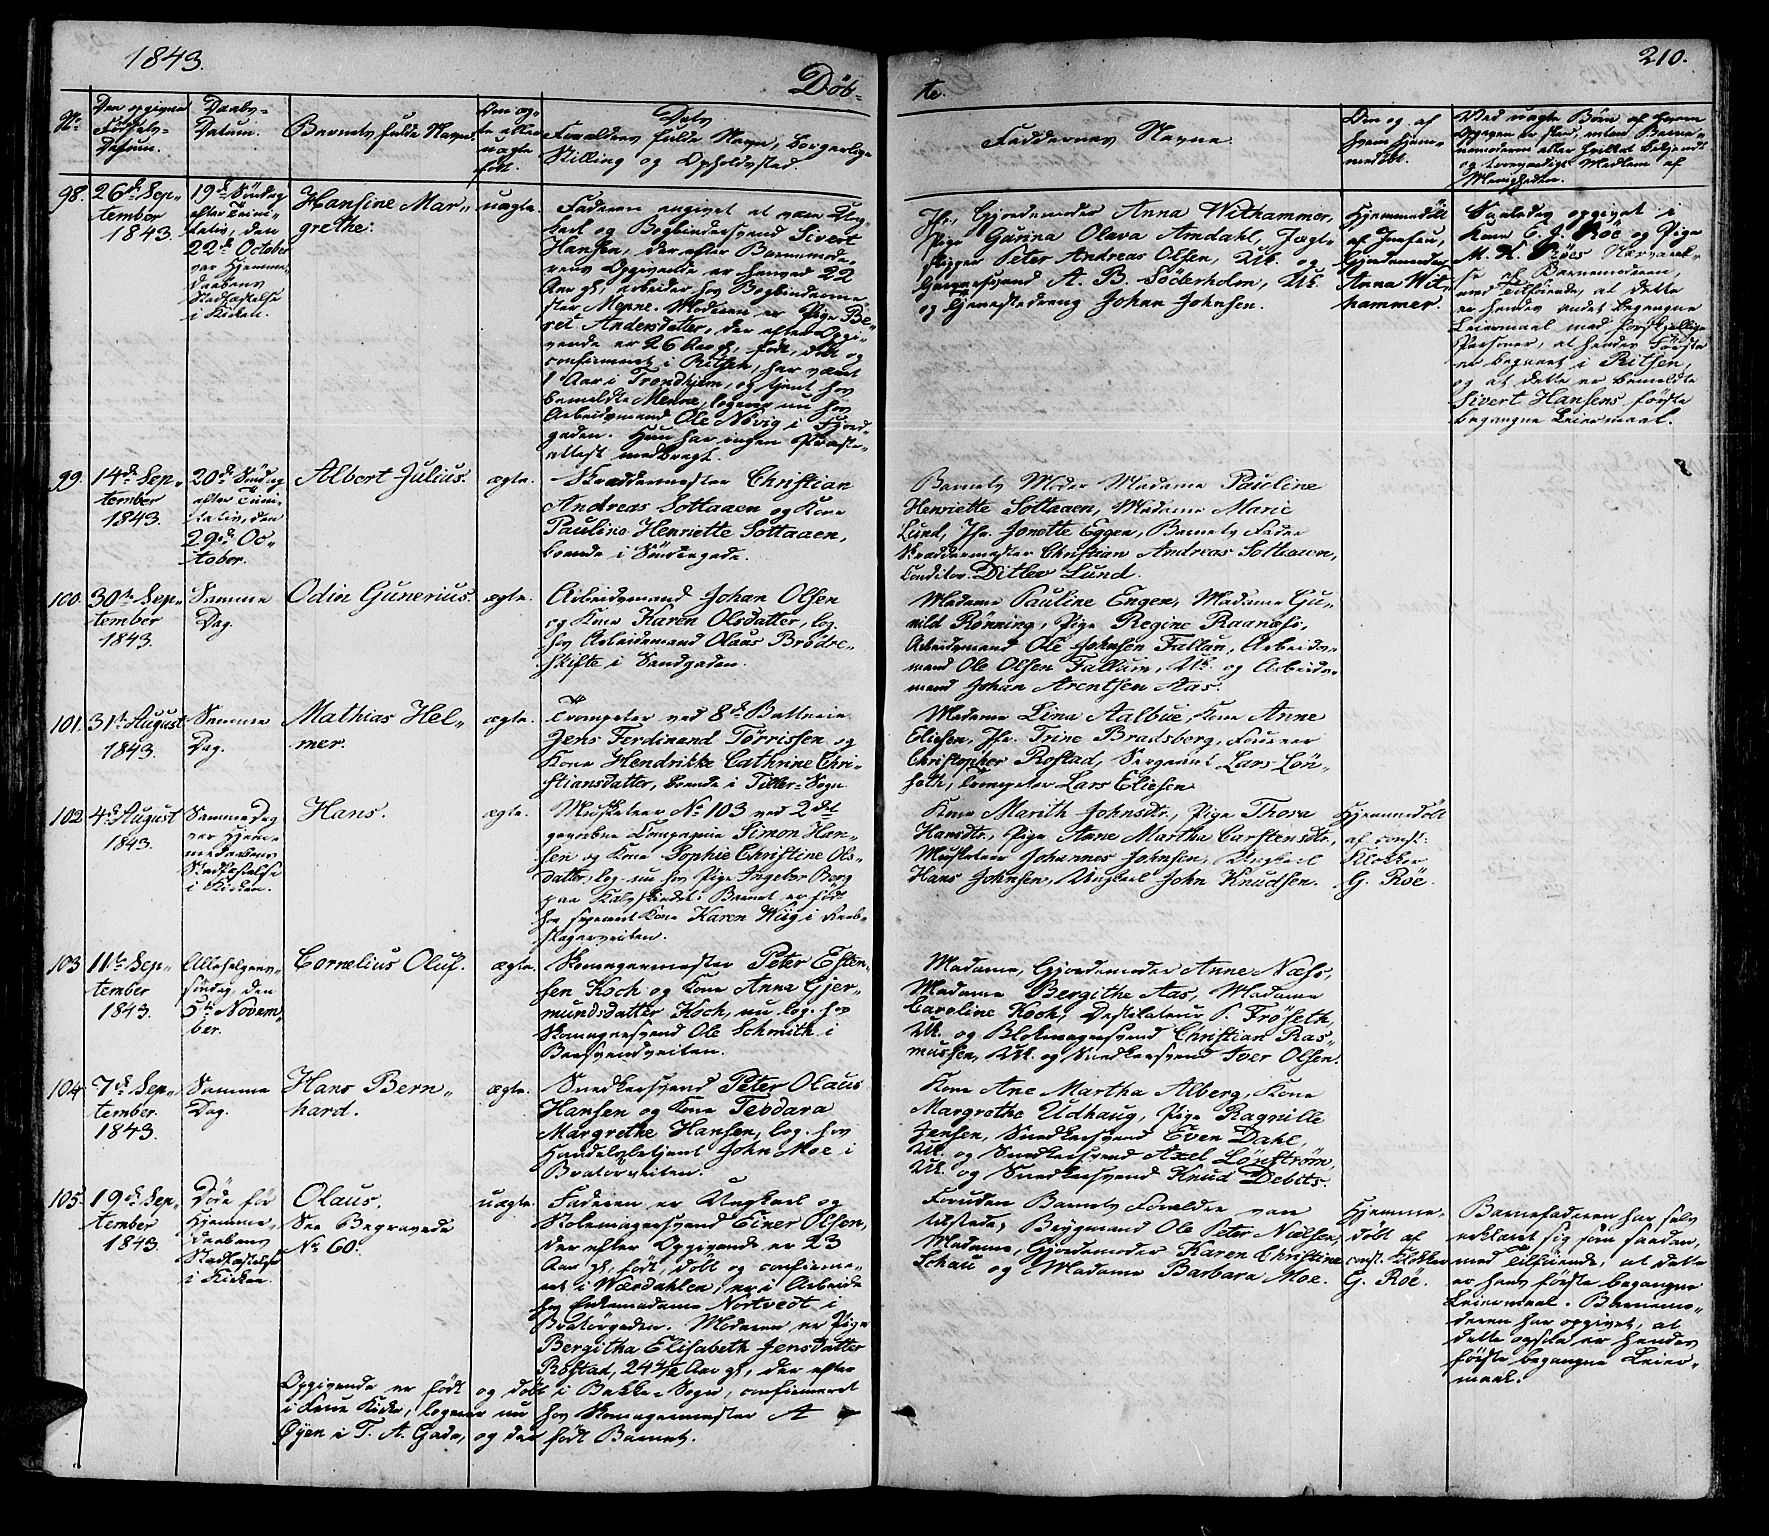 1843.
210.
Døb-
te.
No
Den opgivne
Fødsels-
Datum.
Daabs-
Datum.
Barnets fulde Navn.
Om æg-
te eller
uægte
født.
Dets
Forældres fulde Navn, borgerlige
Stilling og Opholdssted.
Faddernes Navne.
Om og af
hvem hjem-
medøbt.
Ved uægte Børn af hvem
Opgiven er skeed, enten Barne-
moderen eller hvilket bekjendt
og troeværdigt Medlem af
Menigheden.
98.
26de Sep-
tember
1843.
19de Søndag
efter Trini-
tatis, den
22de October
var Hjemme-
daabens
Stadfæstelse
i Kirken.
Hansine Mar-
grethe.
uægte.
Faderen angivet at være Ung-
karl og Bogbindersvend Sivert
Hansen, der efter Barnemode-
rens Opgivende er henved 22
Aar gl, arbeider hos Bogbinderme-
ster Menne. Moderen er Pige Be-
ret Andersdatter, der efter Opgi-
vende er 26 Aar gl, født, døbt og
confirmeret i Ritsen, har været
1 Aar i Trondhjem, og tjent hos
bemeldte Menne, logerer nu hos
Arbeidsmand Ole Nøvig i Fjord-
gaden. Hun har ingen Præste-
attest medbragt.
Jfr., Gjordemoder Anna Withammer,
Pige Gurina Olava Amdahl, Jægt-
skipper Peter Andreas Olsen, Uk. og
Garversvend A. B. Söderholm, Uk.
og Tjenestedreng Johan Johnsen.
Hjemmedøbt
af Jomfru,
Gjordemoder
Anna Wit-
hammer.
Saaledes opgivet i
Kone C. J. Røe og Pige
M. K. Røes Nærværel-
se af Barnemoderen,
med Tilføiende, at dette
er hendes andet begangne
Leiermaal med forskjellige
Personer, at hendes Første
er begaaet i Ritsen,
og at dette er bemeldte
Sivert Hansens første
begangne Leiermaal.
99.
14de Sep-
tember
1843.
20de Søndag
efter Trini-
tatis, den
29de Oc-
tober.
Albert Julius.
ægte.
Skræddermester Christian
Andreas Sottaaen og Kone
Pauline Henriette Sottaaen,
boende i Søndregade.
Barnets Moder Madame Pauline
Henriette Sottaaen, Madame Marie
Lund, Jfr. Jonette Eggen, Barnets Fader
Skræddermester Christian Andreas Sottaaen,
Conditor Ditlev Lund.
100.
30te Sep-
tember
1843.
Samme
Dag.
Odin Gunerius.
ægte.
Arbeidsmand Johan Olsen
og Kone Karen Olsdatter, log.
hos Arbeidsmand Olaus Brødre-
skifte i Sandgaden.
Madame Pauline Engen, Madame Gu-
nild Rønning, Pige Regine Raanæss,
Arbeidsmand Ole Johnsen Fallan, Arbeids-
mand Ole Olsen Fallum, Uk. og Arbeids-
mand Johan Arentsen Aas.
101.
31te August
1843.
Samme
Dag.
Mathias Hel-
mer.
ægte.
Trompeter ved 8de Batterie
Jens Ferdinand Tørrissen og
Kone Hendrikke Cathrine Chri-
stiansdatter, boende i Tiller-Sogn
Madame Lina Aalbue, Kone Anne
Eliesen, Jfr. Trine Bradsberg, Fourer
Christopher Rostad, Sergeant Lars Løn-
seth, Trompeter Lars Eliesen
102
4de August
1843.
Samme Dag
var Hjem-
medaabens
Stadfæstelse
i Kirken.
Hans.
ægte.
Musketeer No 103 ved 2det
gevorbne Compagnie Simon Han-
sen og Kone Sophie Christine Ols-
datter, log. nu hos Pige Ingebor Berg
paa Kalvskindet. Barnet er født
hos separeret Kone Karen Wiig i Raab-
slagerveiten.
Kone Marith Johnsdtr., Pige Thora
Hansdtr., Pige Anne Martha Carstensdtr.,
Musketeer Johannes Johnsen, Ungkarl
Hans Johnsen, Ungkarl John Knudsen.
Hjemmedøbt
af const.
Klokker
G. Røe.
103
11te Sep-
tember
1843.
Allehelgens-
søndag, den
5te Novem-
ber.
Cornelius Oluf.
ægte.
Skomagermester Peter Esten-
sen Koch og Kone Anna Gjer-
mundsdatter Koch, nu log. hos
Skomagersvend Ole Schmith i
Barsvendveiten.
Madame, Gjordemoder Anne Næss,
Madame Bergithe Aas, Madame
Caroline Koch, Destilateur P. Frøseth,
Uk. og Blokmagersvend Christian Ras-
mussen, Uk. og Snedkersvend Iver Olsen.
104
7de Sep-
tember
1843.
Samme
Dag.
Hans Bern-
hard.
ægte.
Snedkersvend Peter Olaus
Hansen og Kone Teodara
Margrethe Hansen, log. hos
Handelsbetjent John Moe i
Bratørveiten.
Kone Ane Martha Alberg, Kone
Margrethe Udhaug, Pige Ragnille
Jensen, Snedkersvend Even Dahl,
Uk. og Snedkersvend Axel Lönström,
Uk. og Snedkersvend Knud Debits.
105.
19de Sep-
tember
1843.
Døde før
Hjemme-
daabens
Stadfæstelse
i Kirken.
Olaus.
See Begravede
No 60.
uægte.
Faderen er Ungkarl og
Stolemagersvend Einer Olson,
der efter Opgivende er 23
Aar gl, født, døbt og confirme-
ret i Wærdahlen, er i Arbeide
hos Enkemadame Nortvedt i
Bratørgaden. Moderen er Pige
Bergitha Elisabeth Jensdatter
Røstad, 24 1/2 Aar gl, der efter
Opgivende er født og døbt i Bakke-Sogn, confirmeret
i Frue Kirke, logerer nu hos Skomagermester A
Øyen i T. A. Gade, og der født Barnet.
Foruden Barnets Forældre var
tilstede, Brygmand Ole Peter Nielsen,
Madame, Gjordemoder Karen Christine
Schau og Madame Barbara Moe.
Hjemme-
døbt af
const. Klokker
G. Røe.
Barnefaderen har selv
erklæret sig som saadan,
med Tilføiende, at dette
er hans første begangne
Leiermaal. Barnemo-
deren har opgivet, at
dette ogsaa er hendes
første begangne Leier-
maal.